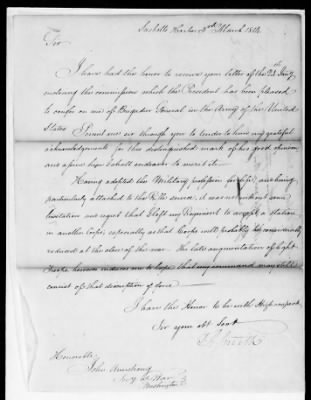 Sacketts Harbor 2nd March 1814
Sir
I have had the honor to receive your letter of the 24th Jany
enclosing the commission which the President has been pleased
to confer on me of Brigadier General in the Army of the United
States. Permit me Sir through you to tender to him my grateful
acknowledgements for this distinguished mark of his good opinion
and assure him I shall endeavor to merit it.
Having adopted the Military profession for life, and being
particularly attached to the Rifle service, it was not without some
hesitation and regret that I left my Regiment to accept a station
in another Corps, especially as that Corps will probably be considerably
reduced at the close of the war. The late augmentation of Light
Troops however induces me to hope that my command may
consist of that description of force
I have the Honor to be with High respect
Sir your obt Servt
Smith
Honorable
John Armstrong
Secy of War
Washington